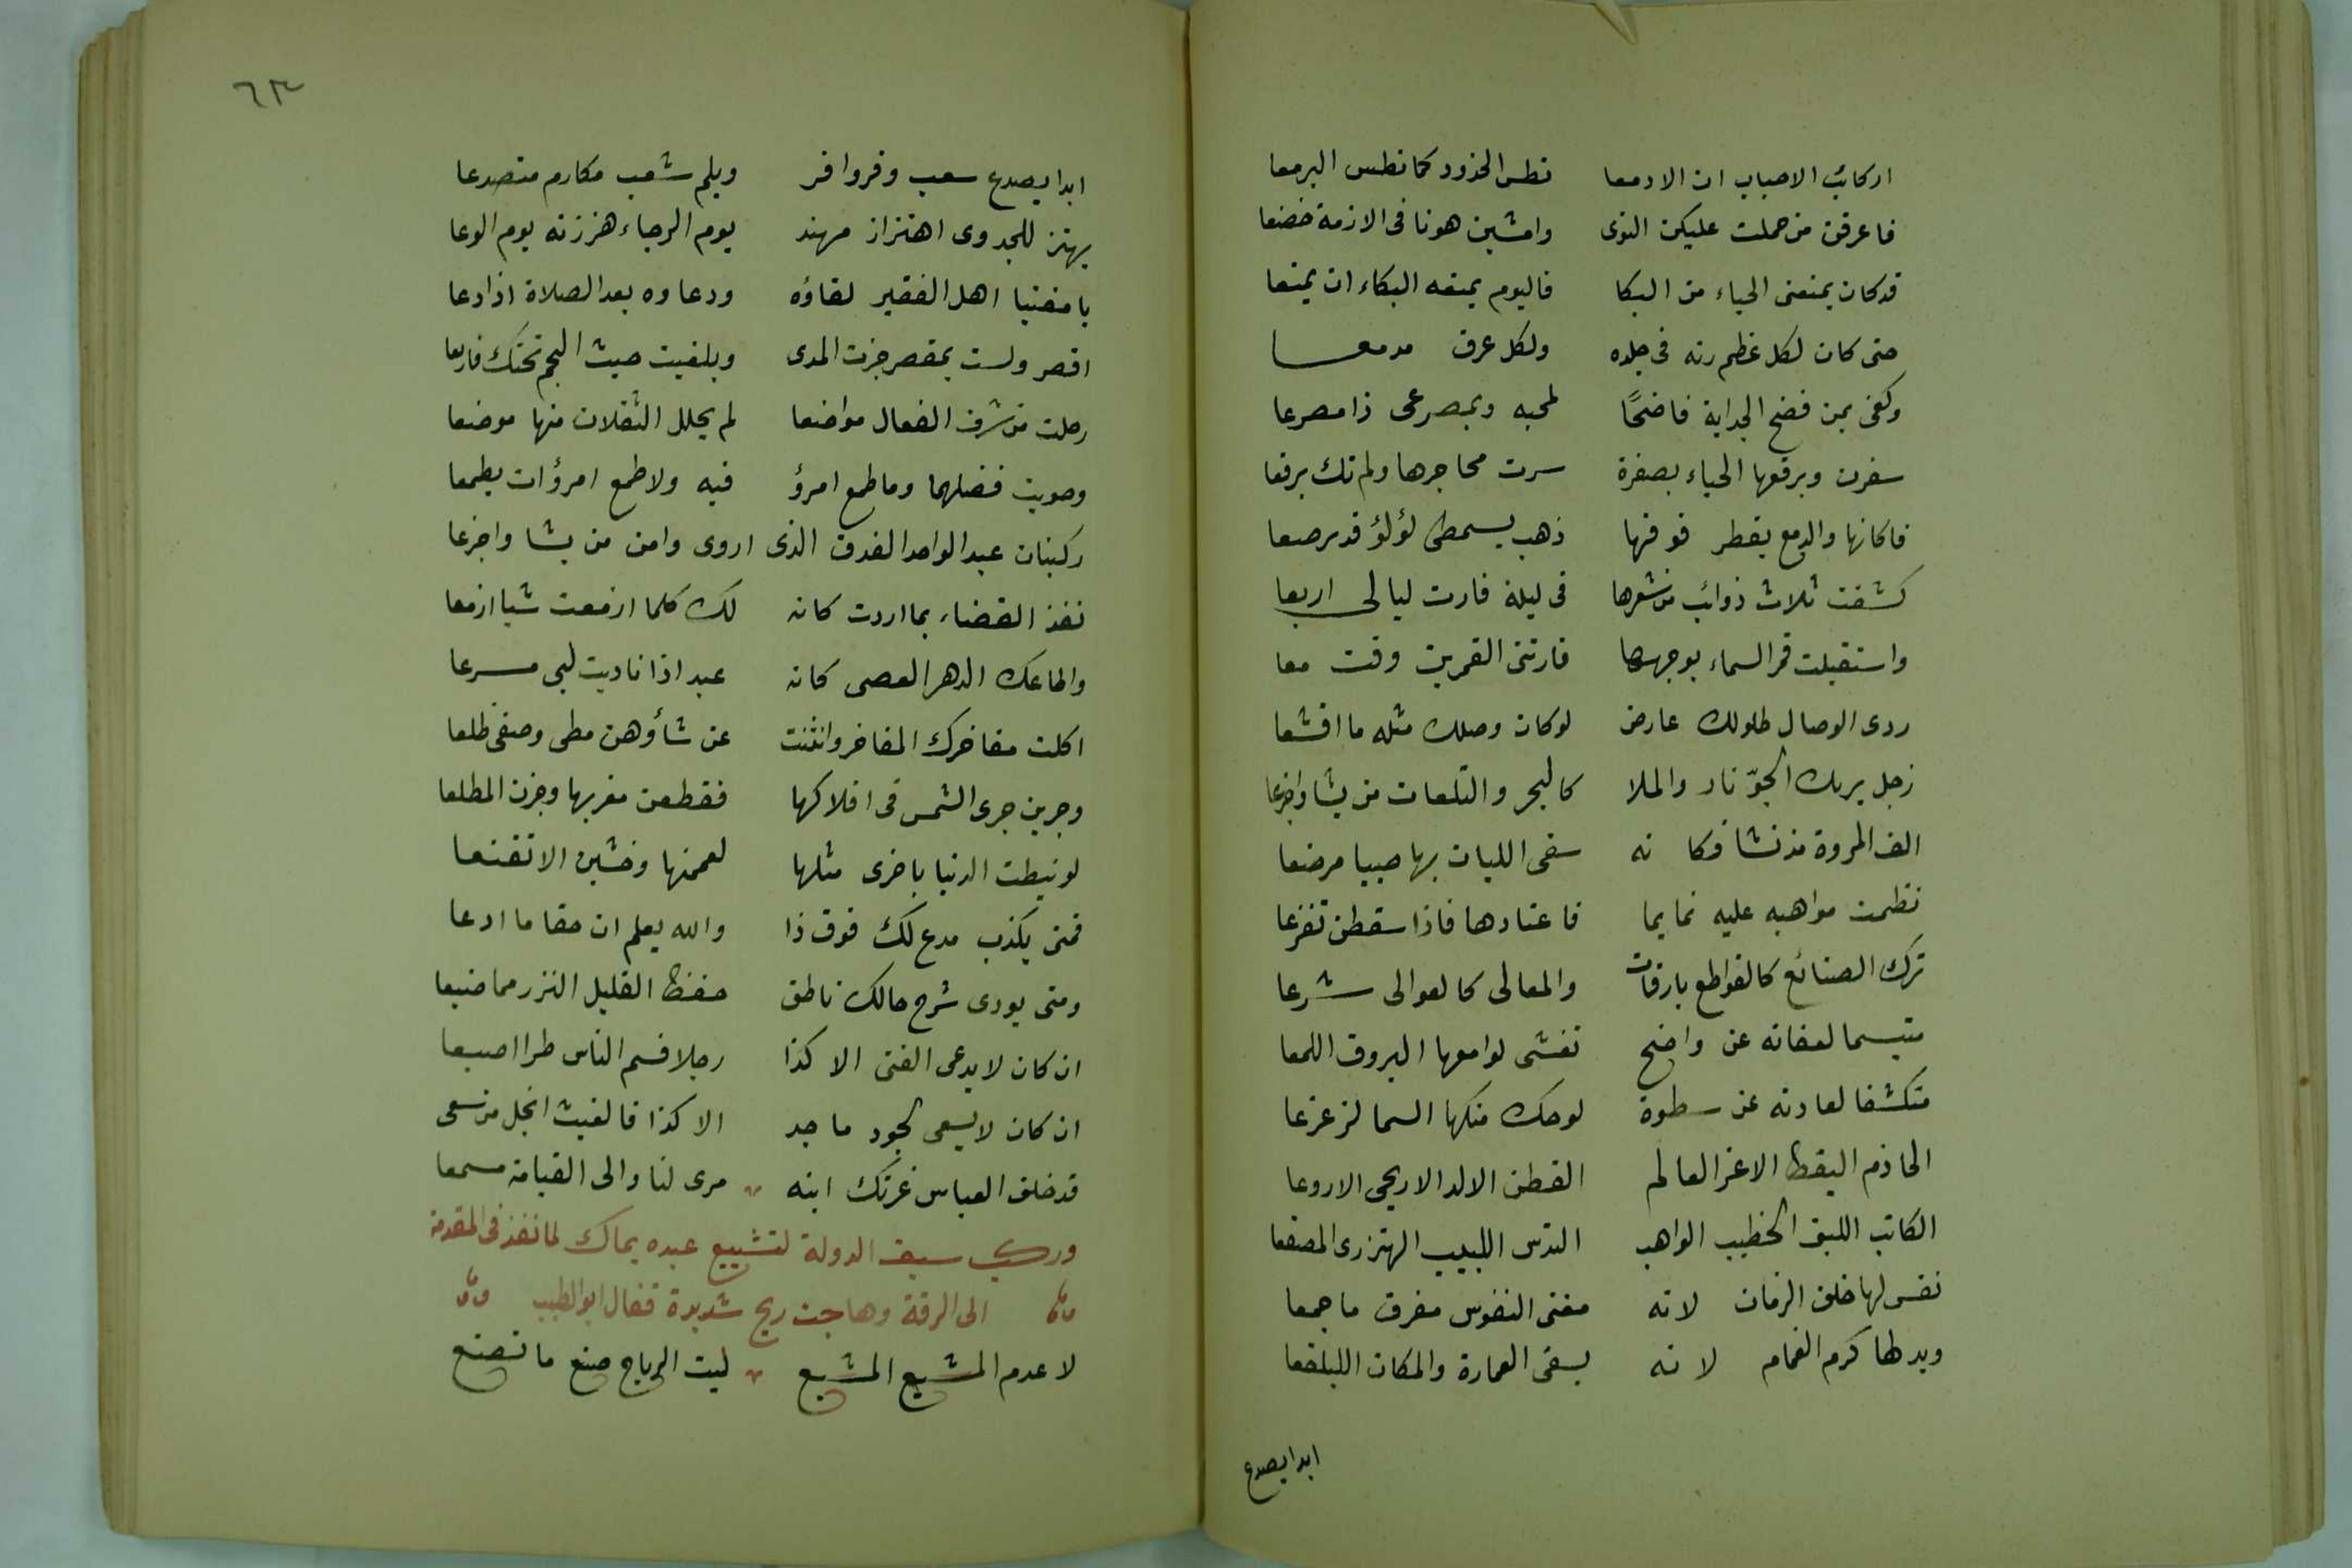 اركائب الاحباب ان الادمعا تطس الخدود كما تطس اليرمعا
فاعرفن من حملت عليكن النوى وامشين هونا فى الازمة خضعا
قد كان يمنعنى الحياء من البكا فاليوم يمنعه البكاء ان يمنعا
حتى كان لكل عظم رنه فى جلده ولكل عرق مدمعا
وكفى بمن فضح الجداية فاضحًا لمحبه وبمصرعى ذا مصرعا
سفرت وبرقعها الحياء بصفرة سرت محاجرها ولم تك برقعا
فكانها والدمع يقطر فوقها ذهب بسمطى لؤلؤ قد رصعا
كشفت ثلاث ذوائب من شعرها فى ليلة فارت ليالى اربعا
واستقبلت قمر السماء بوجهها فارتنى القمرين وقت معا
ردى الوصال طلولك عارض لو كان وصلك مثله ما اقشعا
زجل يريك الجوّ نار والملا كالبحر والتلعات من يشا واجزعا
الف المروة مذ نشا فكانه سقى اللبان بها صبيا مرضعا
نظمت مواهبه عليه تمايما فاعتادها فاذا سقطن تفزعا
ترك الصنائع كالقواطع بارقات والمعالى كالعوالى شرعا
متبسما لعفاته عن واضح تغشى لوامعها البروق اللمعا
متكشفا لعادته عن سطوة لوحك منكبها السما لزعزعا
الحازم اليقظ الاغر العالم الفطن الالد الاريحى الاروعا
الكاتب اللبق الخطيب الواهب الندس اللبيب الهبرزى المصقعا
نفس لها خلق الزمان لانه مفنى النفوس مفرق ما جمعا
ويد لها كرم الغمام لانه يسقى العمارة والمكان البلقعا
ابدا يصدع
٦٣
ابدا يصدع سعب وفر وافر ويلم شعب مكارم متصدعا
يهتز للجدوى اهتزاز مهند يوم الرجاء هززته يوم الوعا
يا مغنيا اهل الفقير لقاؤه ودعاوه بعد الصلاة اذا دعا
اقصر ولست بمقصر جزت المدى وبلغيت حيث النجم تحتك فاربعا
وحللت من شرف الفعال مواضعا لم يحلل الثقلان منها موضعا
وحويت فضلهما وما طمع امرؤ فيه ولا طمع امرؤ ان يطمعا
ركبنات عبد الواحد الغدق الذى اروى وامن من يشا واجزعا
نفذ القضاء بما اردت كانه لك كلما ازمعت شيا ازمعا
واطاعك الدهر العصى كانه عبد اذا ناديت لبى مسرعا
اكلت مفاخرك المفاخر وانثنت عن شأوهن مطى وصفى ظلعا
وجرين جرى الشمس فى افلاكها فقطعن مغربها وجزن المطلعا
لو نيطت الدنيا باخرى مثلها لعممنها وخشين الا تقنعا
فمتى يكذب مدع لك فوق ذا والله يعلم ان حقا ما ادعا
ومتى يودى شرح حالك ناطق حفظ القليل النزر مما ضيعا
ان كان لا يدعى الفتى الا كذا رجلا فسم الناس طرا اصبعا
ان كان لا يسعى لجود ماجد الا كذا فالغيث ابخل من سعى
قد خلف العباس غرتك ابنه مرى لنا والى القيامة مسمعا
وركب سيف الدولة لتشييع عبده يماك لما نفذ فى المقدمة
الى الرقة وهاجت ريح شديدة فقال ابو الطيب
لا عدم المشيع المشيع ليت الرياح صنع ما تصنع